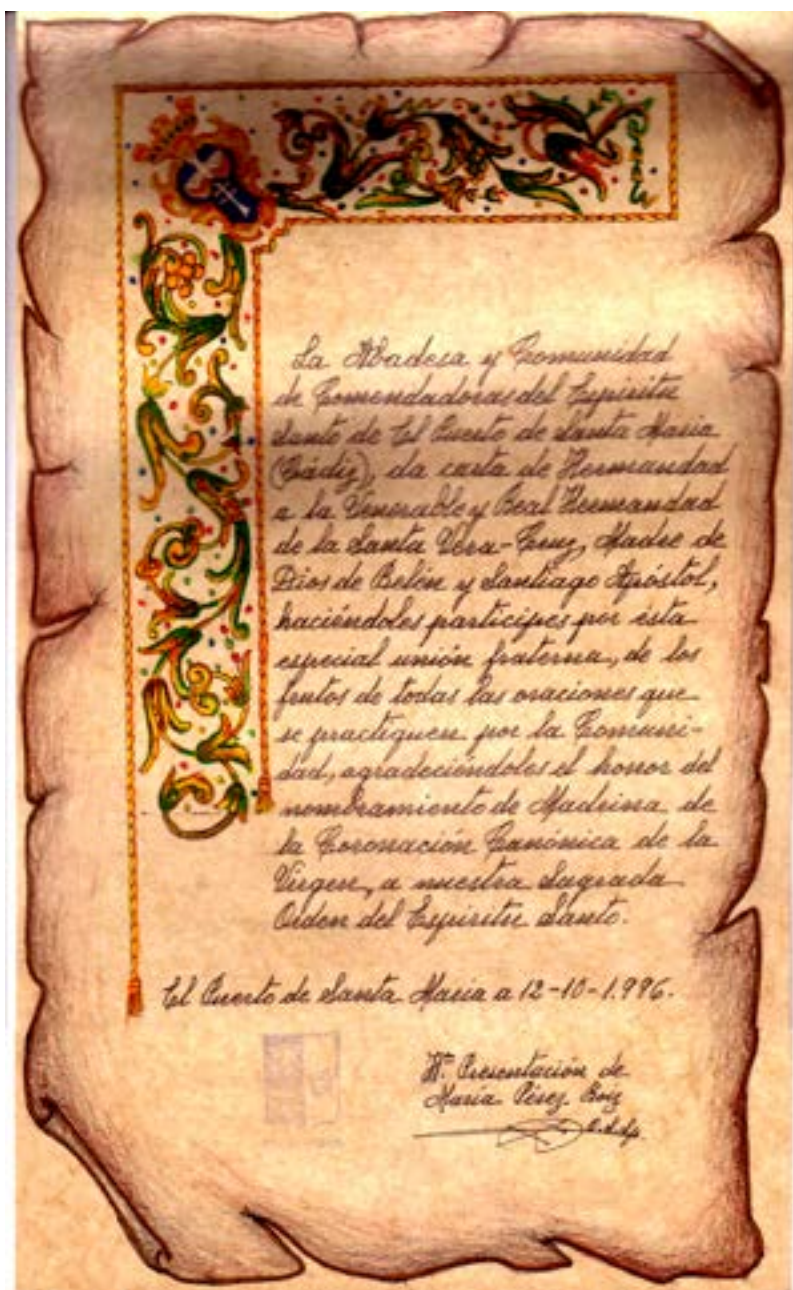 La Abadesa y Comunidad
de Comendadoras del Espíritu
Santo de El Puerto de Santa María
(Cádiz), da carta de Hermandad
a la Venerable y Real Hermandad
de la Santa Vera-Cruz, Madre de
Dios de Belén y Santiago Apóstol,
haciéndoles partícipes por esta
especial unión fraterna, de los
frutos de todas las oraciones que
se practiquen por la Comuni-
dad, agradeciéndoles el honor del
nombramiento de Madrina de
la Coronación Canónica de la
Virgen, a nuestra Sagrada
Orden del Espíritu Santo.
El Puerto de Santa María a 12-10-1.996.
Mª Presentación de
María Pérez